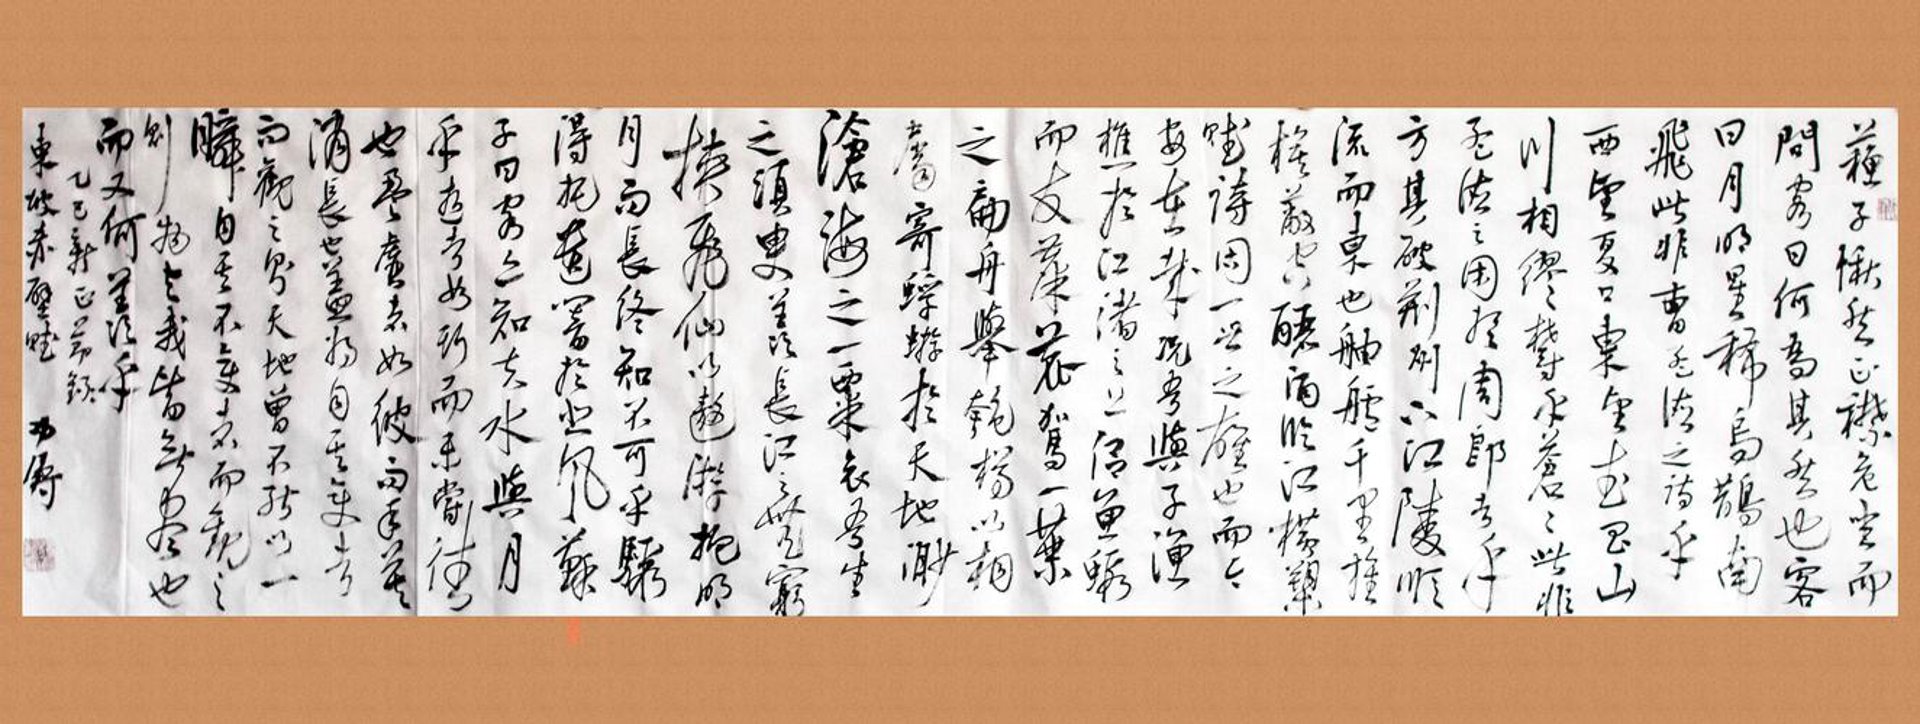 蘇子愀然正襟危坐而
問客曰何為其然也客
曰月明星稀烏鵲南
飛此非曹孟德之詩乎
西望夏口東望武昌山
川相繆鬱乎蒼蒼此非
孟德之困於周郎者乎
方其破荊州下江陵順
流而東也舳艫千里旌
旗蔽空釃酒臨江橫槊
賦詩固一世之雄也而今
安在哉況吾與子漁
樵於江渚之上侶魚蝦
而友麋鹿駕一葉
之扁舟舉匏樽以相
屬寄蜉蝣於天地渺
滄海之一粟哀吾生
之須臾羨長江之無窮
挾飛仙以遨遊抱明
月而長終知不可乎驟
得托遺響於悲風蘇
子曰客亦知夫水與月
乎逝者如斯而未嘗往
也盈虛者如彼而卒莫
消長也蓋將自其變者
而觀之則天地曾不能以一
瞬自其不變者而觀之
則物與我皆無盡也
而又何羨乎
乙巳新正節錄
東坡赤壁賦